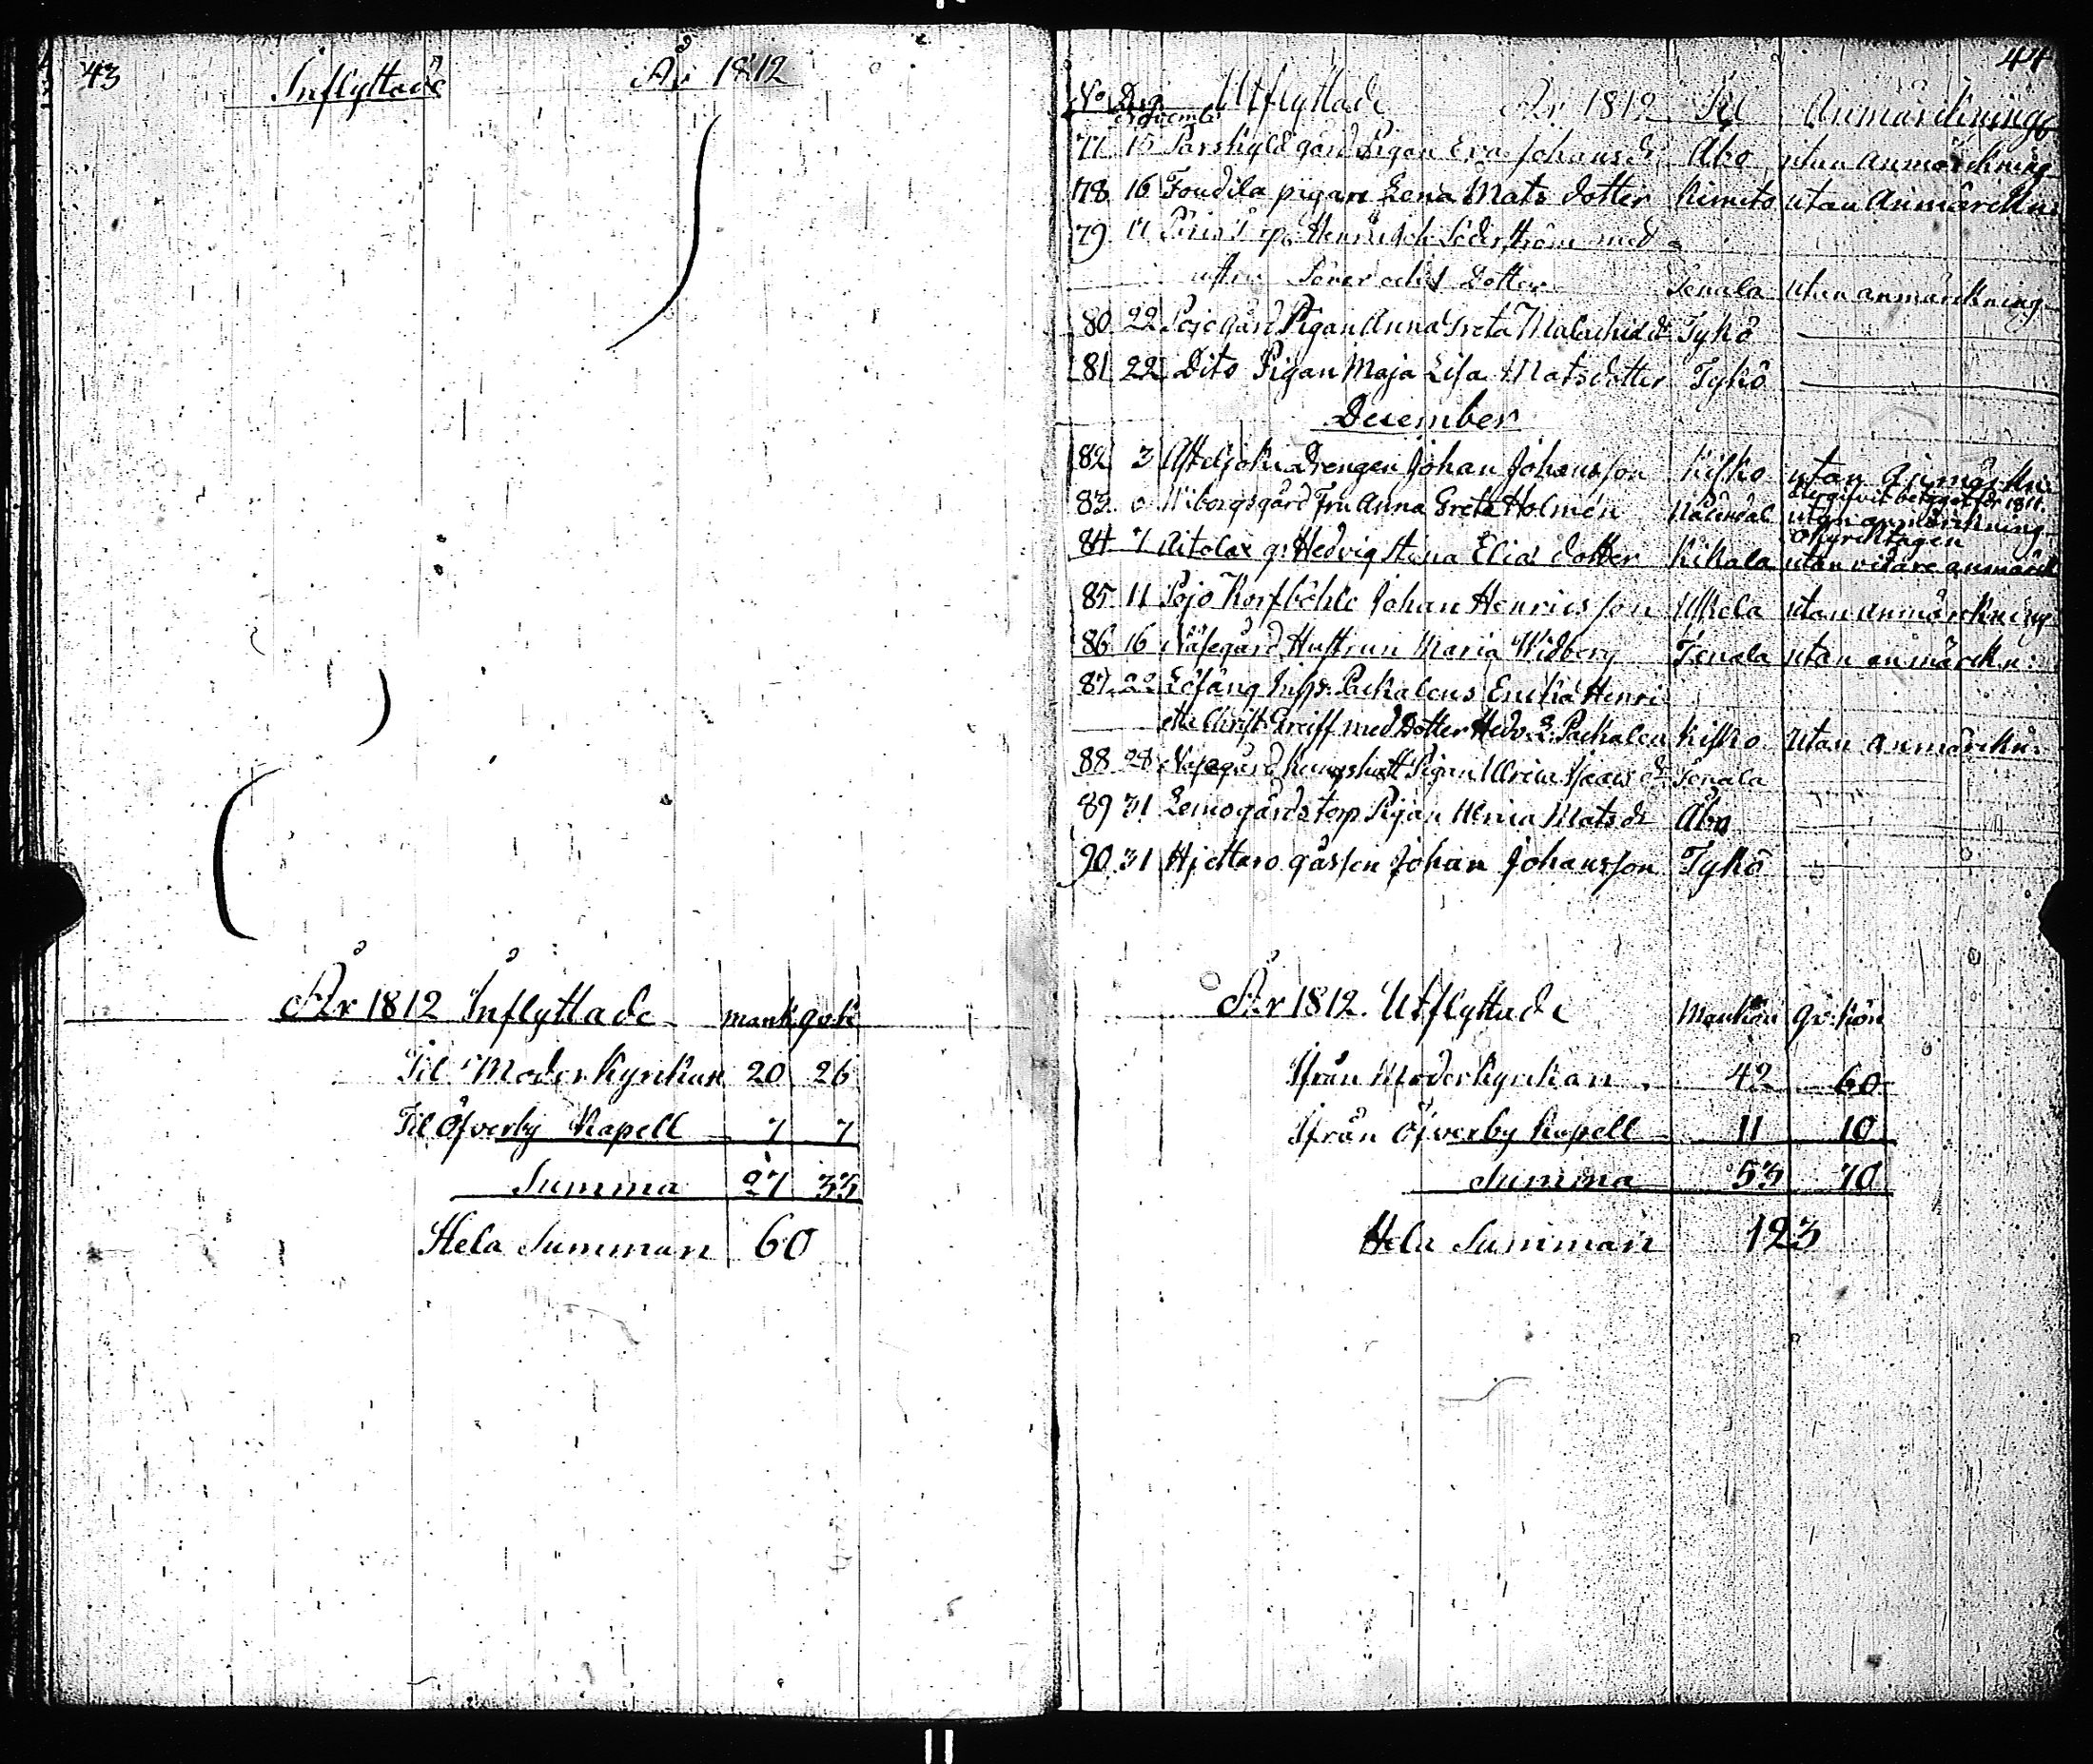 43
Inflyttade År 1812
År 1812 Inflyttade mank qvk
Til Moderkyrkan 20 26
Til Öfverby Kapell 7 7
Summa 27 33
Hela Summan 60
44
No Dag Utflyttade År 1812 Til Anmärkningar
November
77 15 Parskyld gård Pigan Eva Johansdr Åbo utan anmärckning
78 16 Foudila pigan Lena Mats dotter Kimito utan Anmärckn
79 17 Henrich Söderström med
hustru Söner och 1 Dotter Tenala utan anmärckning
80 22 Pojo gård Pigan Anna Greta Malachid dr Tykö
81 22 Dito Pigan Maja Lisa Matsdotter Tykö
December
82 3 drengen Johan Johansson Kisko utan Anmärkn:
83 Wiborgsgård Fru Anna Greta Holmén Nådendal utan anmärckning
84 7 Hedvig Stina Elias dotter Kikala utan vidare anmärck
85 11 Pojo Korsböhle Johan Henricsson Uskela utan anmärckning
86 16 Näsegård Hustrun Maria Widberg Tenala utan anmärckn:
87 22 Pachalens Enckia Henri
etta Christ. Greiff med Dotter Hedv. L. Pachalen Kisko Utan anmärckn:
88 28 Näsegård Pigan Ulrica Isaacs dr Tenala
89 31 Lemogårds torp Pigan Maria Mats dr Åbo
90 31 Hjettaro gåssen Johan Johansson Tykö
År 1812. Utflyttade Mankön Qv:kön
Ifrån Moderkyrckan 42 60
Ifrån Öfverby Kapell 11 10
Summa 53 70
Hela Summan 123